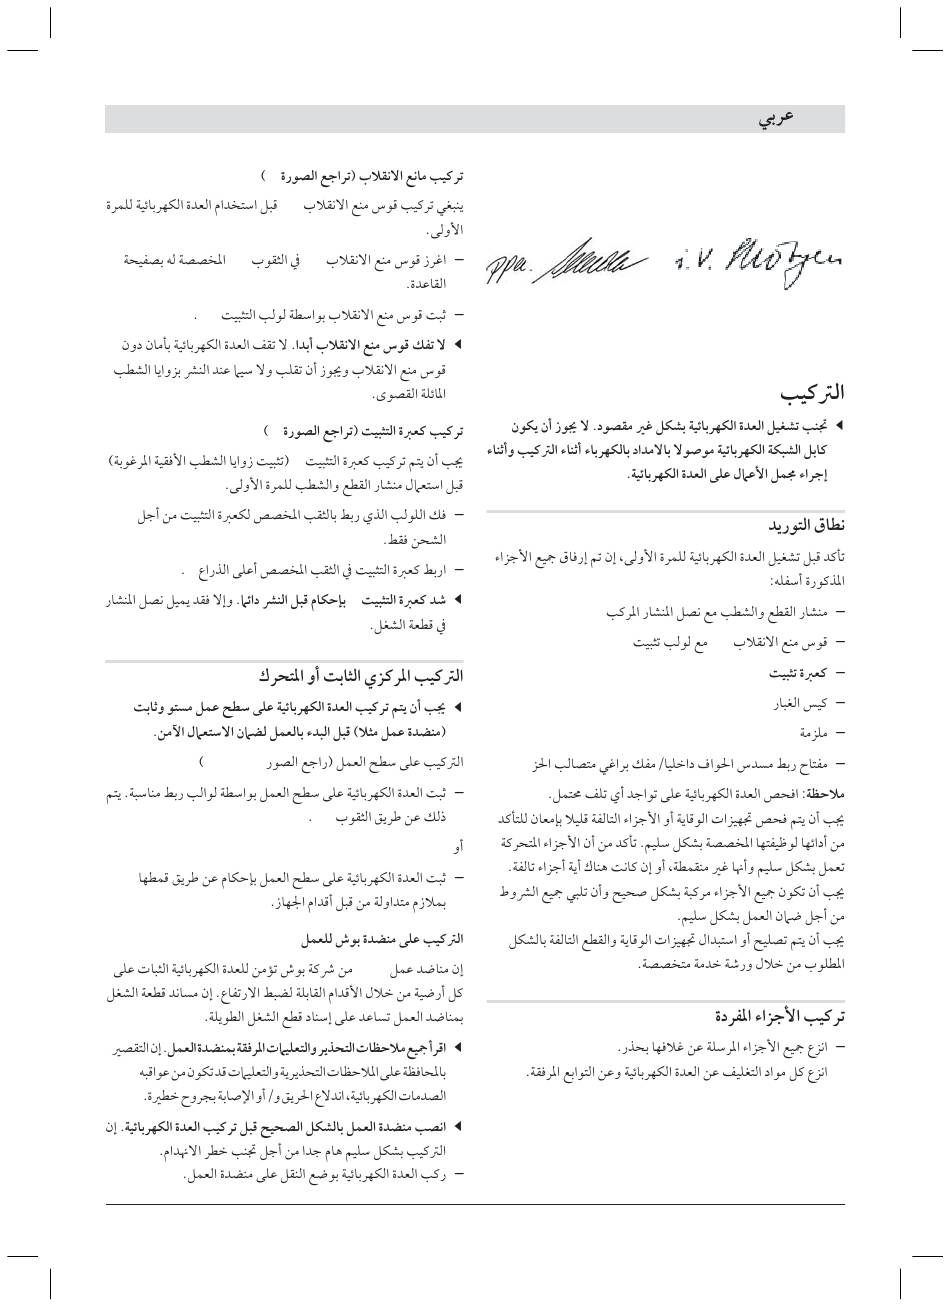 عربي
ppa. i.V.
التركيب
◀ تجنب تشغيل العدة الكهربائية بشكل غير مقصود. لا يجوز أن يكون
كابل الشبكة الكهربائية موصولا بالامداد بالكهرباء أثناء التركيب وأثناء
إجراء مجمل الأعمال على العدة الكهربائية.
نطاق التوريد
تأكد قبل تشغيل العدة الكهربائية للمرة الأولى، إن تم إرفاق جميع الأجزاء
المذكورة أسفله:
– منشار القطع والشطب مع نصل المنشار المركب
– قوس منع الانقلاب مع لولب تثبيت
– كعبرة تثبيت
– كيس الغبار
– ملزمة
– مفتاح ربط مسدس الحواف داخليا/ مفك براغي متصالب الحز
ملاحظة: افحص العدة الكهربائية على تواجد أي تلف محتمل.
يجب أن يتم فحص تجهيزات الوقاية أو الأجزاء التالفة قليلا بإمعان للتأكد
من أدائها لوظيفتها المخصصة بشكل سليم. تأكد من أن الأجزاء المتحركة
تعمل بشكل سليم وأنها غير منقمطة، أو إن كانت هناك أية أجزاء تالفة.
يجب أن تكون جميع الأجزاء مركبة بشكل صحيح وأن تلبي جميع الشروط
من أجل ضمان العمل بشكل سليم.
يجب أن يتم تصليح أو استبدال تجهيزات الوقاية والقطع التالفة بالشكل
المطلوب من خلال ورشة خدمة متخصصة.
تركيب الأجزاء المفردة
– انزع جميع الأجزاء المرسلة عن غلافها بحذر.
انزع كل مواد التغليف عن العدة الكهربائية وعن التوابع المرفقة.
تركيب مانع الانقلاب (تراجع الصورة )
ينبغي تركيب قوس منع الانقلاب قبل استخدام العدة الكهربائية للمرة
الأولى.
– اغرز قوس منع الانقلاب في الثقوب المخصصة له بصفيحة
القاعدة.
– ثبت قوس منع الانقلاب بواسطة لولب التثبيت .
◀ لا تفك قوس منع الانقلاب أبدا. لا تقف العدة الكهربائية بأمان دون
قوس منع الانقلاب ويجوز أن تقلب ولا سيما عند النشر بزوايا الشطب
المائلة القصوى.
تركيب كعبرة التثبيت (تراجع الصورة )
يجب أن يتم تركيب كعبرة التثبيت (تثبيت زوايا الشطب الأفقية المرغوبة)
قبل استعمال منشار القطع والشطب للمرة الأولى.
– فك اللولب الذي ربط بالثقب المخصص لكعبرة التثبيت من أجل
الشحن فقط.
– اربط كعبرة التثبيت في الثقب المخصص أعلى الذراع .
◀ شد كعبرة التثبيت بإحكام قبل النشر دائما. وإلا فقد يميل نصل المنشار
في قطعة الشغل.
التركيب المركزي الثابت أو المتحرك
◀ يجب أن يتم تركيب العدة الكهربائية على سطح عمل مستو وثابت
(منضدة عمل مثلا) قبل البدء بالعمل لضمان الاستعمال الآمن.
التركيب على سطح العمل (راجع الصور )
– ثبت العدة الكهربائية على سطح العمل بواسطة لوالب ربط مناسبة. يتم
ذلك عن طريق الثقوب .
أو
– ثبت العدة الكهربائية على سطح العمل بإحكام عن طريق قمطها
بملازم متداولة من قبل أقدام الجهاز.
التركيب على منضدة بوش للعمل
إن مناضد عمل من شركة بوش تؤمن للعدة الكهربائية الثبات على
كل أرضية من خلال الأقدام القابلة لضبط الارتفاع. إن مساند قطعة الشغل
بمناضد العمل تساعد على إسناد قطع الشغل الطويلة.
◀ اقرأ جميع ملاحظات التحذير والتعليمات المرفقة بمنضدة العمل. إن التقصير
بالمحافظة على الملاحظات التحذيرية والتعليمات قد تكون من عواقبه
الصدمات الكهربائية، اندلاع الحريق و/ أو الإصابة بجروح خطيرة.
◀ انصب منضدة العمل بالشكل الصحيح قبل تركيب العدة الكهربائية. إن
التركيب بشكل سليم هام جدا من أجل تجنب خطر الانهدام.
– ركب العدة الكهربائية بوضع النقل على منضدة العمل.